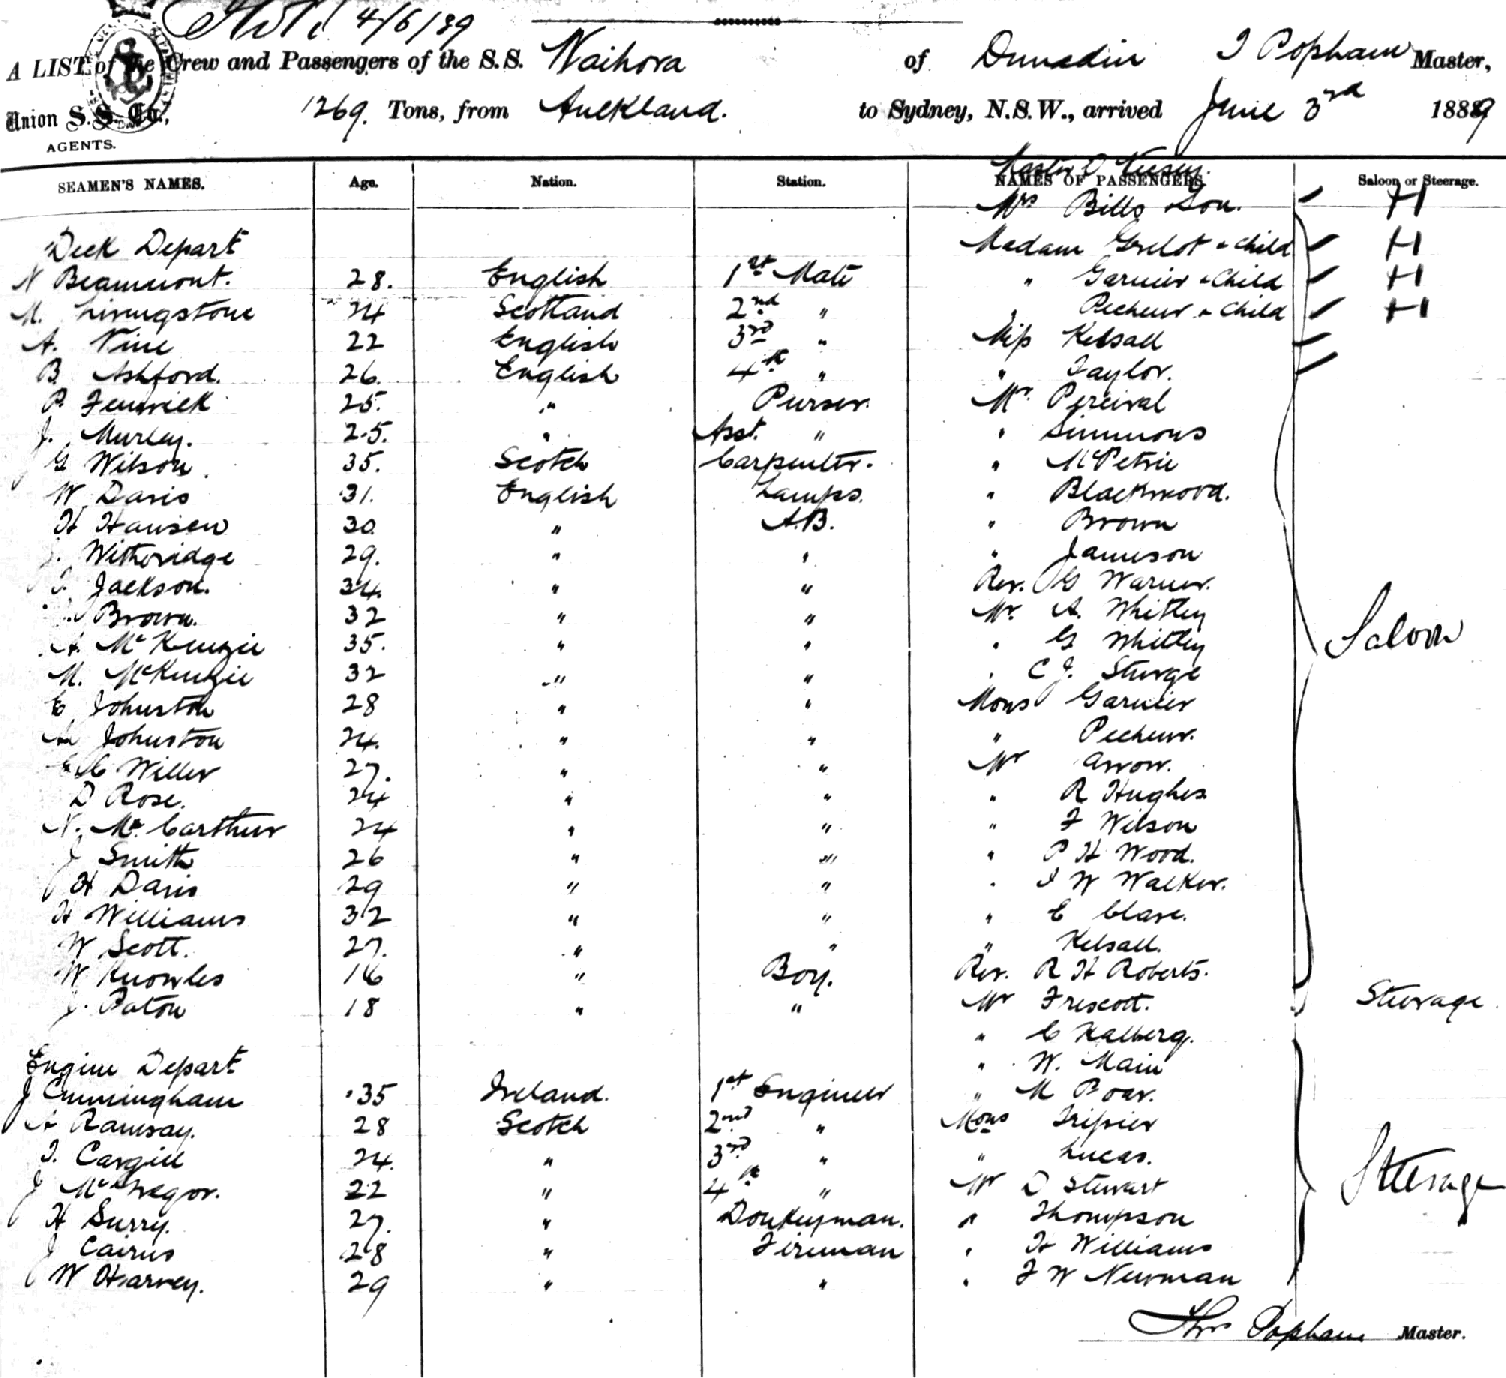 4/6/89
A LIST of the Crew and Passengers of the S.S. Waihora of Dunedin T Popham Master,
Union S.S. Co., 1269. Tons, from Auckland. to Sydney, N.S.W., arrived June 3rd 1889
AGENTS.
Master
SEAMEN'S NAMES. Age. Nation. Station. NAMES OF PASSENGERS. Saloon or Steerage.
Mrs Bills & Son. H
Deck Depart Madam Grelot & Child H
N Beaumont. 28. English 1st Mate " Garnier & Child H
M. Livingstone 24 Scotland 2nd " " Pecheur & Child H
A. Vine 22 English 3rd " Miss Kelsall
B Ashford. 26. English 4th " " Taylor.
P. Fenwick 25. " Purser. Mr Percival
J. Murley. 25. " Asst. " " Simmons
J G Wilson. 35. Scotch Carpenter. " McPetrie
W Davis 31. English Lamps. " Blackwood.
H Hansen 30 " A.B. " Brown
J. Witheridge 29. " " " Jamieson
T. Jackson. 34 " " Rev. G Warner.
Brown. 32 " " Mr. A. Whitley
A McKenzie 35. " " " G Whitley
M. McKenzie 32 " " " C J. Sturge
C Johnston 28 " " Mons Garnier
A Johnston 24. " " " Pecheur.
Willer 27. " " Mr Arrow.
D Rose. 24 " " " R Hughes
N. McCarthur 24 " " " F Wilson
J Smith 26 " " " P H Wood.
H Davis 29 " " " J W Walker.
H Williams 32 " " " C Clare.
W Scott. 27. " " " Kelsall.
W Knowles 16 " Boy. Rev. R H Roberts.
Saloon
J. Paton 18 " " Mr Triscott. Steerage
" C Kalberg.
Engine Depart " W. Main
J Cunningham 35 Ireland. 1st Engineer " M Boar.
A Ramsay. 28 Scotch 2nd " Mons Tripier
T. Cargill 24. " 3rd " " Lucas.
J McGregor. 22 " 4th " Mr D Stewart
H Surry. 27. " Donkeyman. " Thompson
J Cairns 28 " Fireman " H Williams
W Harvey. 29 " " " F W Newman
Steerage
Thos Popham Master.